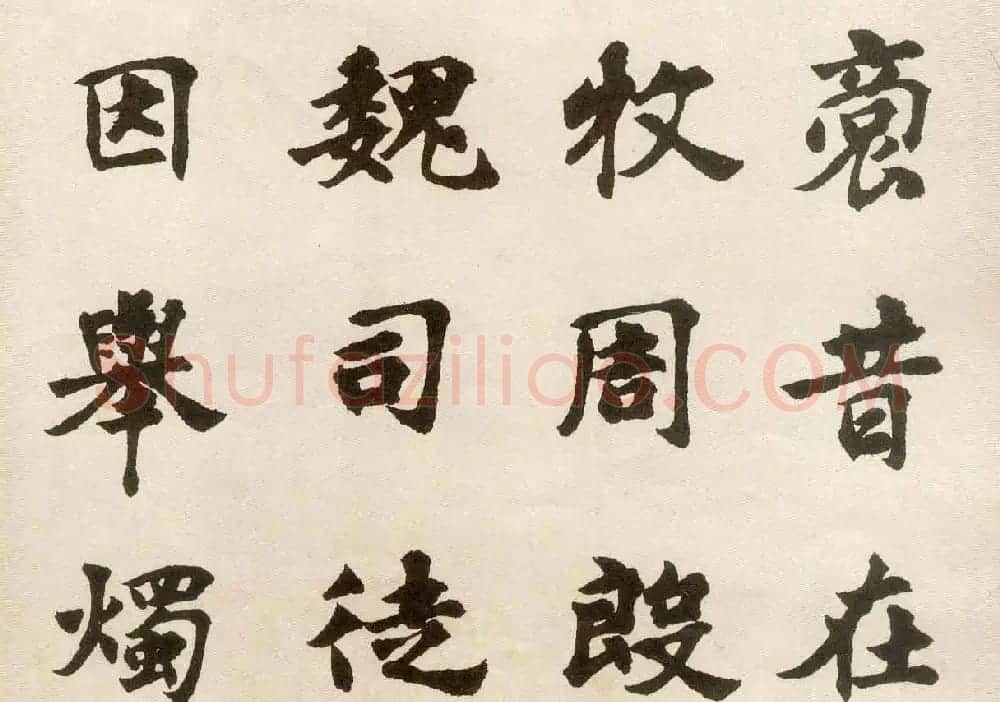 裔昔在
牧周殷
魏司徒
因舉燭
Shufaziliao.COM